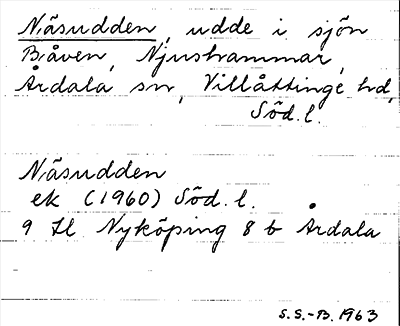 Näsudden, udde i sjön
Båven, Njushammar,
Årdala sn, Villåttinge hd,
Söd. l.
Näsudden
ek (1960) Söd. l.
9 H Nyköping 8 b Årdala
S.S.-B. 1963